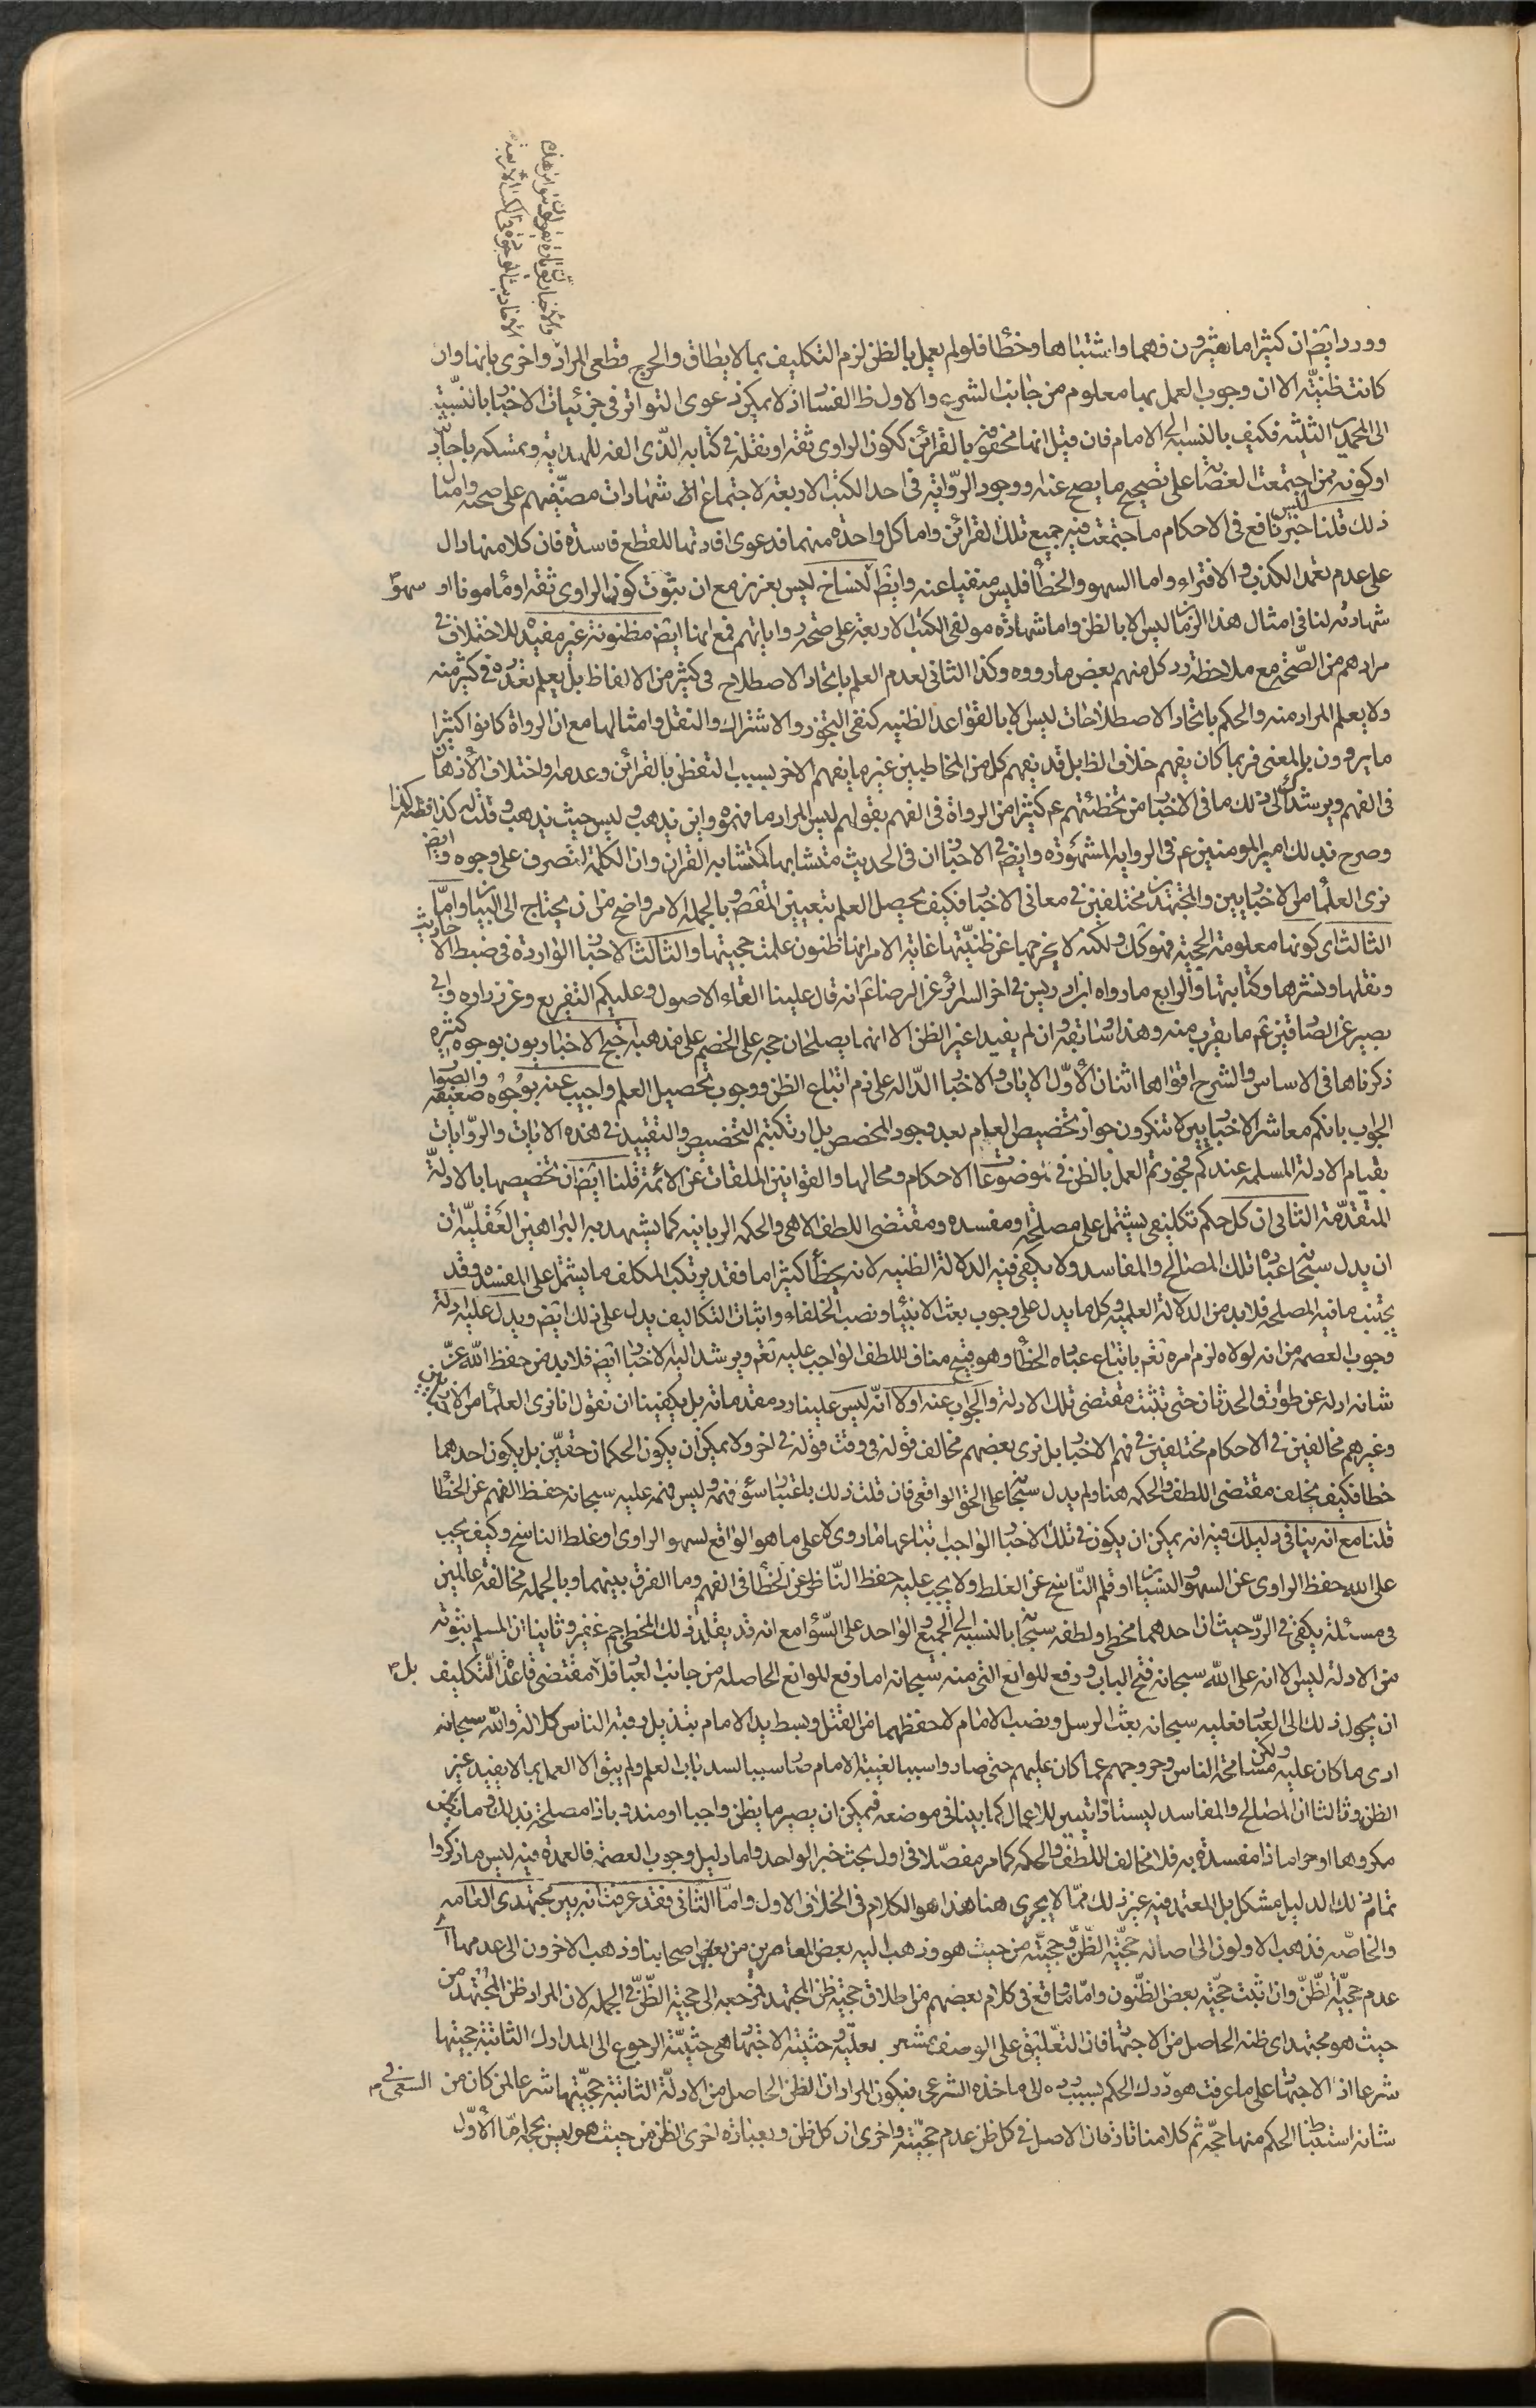 وورد ايضا ان كثيرا ما يغيرون فهما واشتباها وخطأ فلو لم يعمل بالظن لزم التكليف بما لا يطاق والحرج قطعى المراد واخرى بانها وان
كانت ظنيّة الا ان وجوب العمل بها معلوم من جانب الشرع والاول ظ الفسا اذ لا يمكن دعوى التواتر فى جزئيات الاخبا بالنسبة
الى المحمدين الثلثة فكيف بالنسبة الى الامام فان قيل انها محفوفة بالقرائن ككون الراوى ثقة او نقله فى كتابه الذى الفه للهداية وتمسكه باحاد
او كونه ممن اجتمعت العصابة على تصحيح ما يصح عنه ووجود الرّواية فى احد الكتب الاربعة لاجتماع شهادات مصنّفيهم على صحته وامثال
ذلك قلنا ليس خبر نافع فى الاحكام ما اجتمعت فيه جميع تلك القرائن واما كل واحدة منهما فدعوى افادتها للقطع فاسدة فان كلا منها دال
على عدم تعمد الكذب والافتراء واما السهو والخطأ فليس منفيا عنه وايض سهو النساخ ليس بعزيز مع ان ثبوت كون الراوى ثقة او مامونا او
شهادته لنا فى امثال هذا الزمان ليس الا بالظن واما شهادة مولفى الكتب الاربعة على صحة رواياتهم فمع انها ايض مظنونة غير مفيد للاختلاف فى
مرادهم من الصّحة مع ملاحظة رد كل منهم بعض ما رووه وكذا الثانى لعدم العلم باتحاد الاصطلاح فى كثير من الالفاظ بل يعلم تعدده فى كثير منه
ولا يعلم المراد منه والحكم باتحاد الاصطلاحات ليس الا بالقواعد الظنيه كنفى التجوز والاشتراك والنقل وامثالها مع ان الرواة كانوا كثيرا
ما يروون بالمعنى فربما كان يفهم خلاف الظ بل قد يفهم كل من المخاطبين غير ما يفهم الاخر بسبب التفطن بالقرائن وعدمه واختلاف الأذهان
فى الفهم ويرشدك الى ذلك ما فى الاخبا من تخطئتهم عم كثيرا من الرواة فى الفهم بقولهم ليس المراد ما فهموه واين يذهب وليس حيث يذهب وقلت له كذا فظن كذا
وصرح بذلك امير المومنين عم فى الرواية المشهورة وايض فى الاخبا ان فى الحديث متشابها كمتشابه القران وان الكلمة لتصرف على وجوه وايض
نرى العلما من الاخباريين والمجتهدين مختلفين فى معانى الاخبا فكيف يحصل العلم بتعيين المقص وبالجملة الامر واضح من ان يحتاج الى البيان واما
الثالث اى كونها معلومة الحجية فهو كك ولكنه لا يخرجها عن ظنيّتها غاية الامر انها ظنون علمت حجيتها والثالث الاخبا الواردة فى ضبط الاحاديث
ونقلها ونشرها وكتابتها والرابع ما رواه ابن ادريس فى اخر السرائر عن الرضا عم انه قال علينا القاء الاصول وعليكم التفريع وعن زرارة وابى
بصير عن الصادقين عم ما يقرب منه وهذا وسابقه وان لم يفيدا غير الظن الا انهما يصلحان حجه على الخصم على مذهبه احتج الاخباريون بوجوه كثيره
ذكرناها فى الاساس والشرح اقواها اثنان الأوّل الايات والاخبا الدّاله على ذم اتباع الظن ووجوب تحصيل العلم واجيب عنه بوجوه ضعيفه والصوا
الجواب بانكم معاشر الاخباريين لا تنكرون جواز تخصيص العام بعد وجود المخصص بل ارتكبتم التخصيص والتقييد فى هذه الايات والروايات
بقيام الادلة المسلمة عندكم فجوزتم العمل بالظن فى موضوعات الاحكام ومحالها والقوانين الملقات عن الائمة قلنا ايض ان تخصيصها بالادلة
المتقدّمة الثانى ان كل حكم تكليفى يشتمل على مصلحة او مفسده ومقتضى اللطف الالهى والحكمه الربانيه كما يشهد به البراهين العقليّه ان
ان يدل سبحانه عباده تلك المصالح والمفاسد ولا يكفى فيه الدلالة الظنيه لانه يخطأ كثيرا ما فقد يرتكب المكلف ما يشتمل على المفسده وقد
يجتنب ما فيه المصلحه فلا بد من الدلالة العلميه وكل ما يدل على وجوب بعث الانبيا ونصب الخلفاء واثبات التكاليف يدل على ذلك ايض ويدل عليه ادلة
وجوب العصمه من انه لولاه لزم امره تعم باتباع عباده الخطأ وهو قبيح مناف للطف الواجب عليه تعم ويرشد اليه الاخبا ايض فلا بد من حفظ الله عزّ
شانه ادلة عن طوارق الحدثان حتى تثبت مقتضى تلك الادلة والجواب عنه اولا انّه ليس علينا رد مقدماته بل يكفينا ان نقول انا نرى العلما من الاخباريين
وغيرهم مخالفين فى الاحكام مختلفين فى فهم الاخبا بل نرى بعضهم مخالف قوله فى وقت قوله فى اخر ولا يمكن ان يكون الحكمان حقين بل يكون احدهما
خطا فكيف يخلف مقتضى اللطف والحكمه هنا ولم يدل سبحانه على الحق الواقعى فان قلت ذلك باعتبا سؤ فهمه وليس فهمه عليه سبحانه حفظ الفهم عن الخطا
قلنا مع انه ينافى دليلك فيه انه يمكن ان يكون فى تلك الاخبا الواجب اتباعها ما روى لا على ما هو الواقع لسهو الراوى او غلط الناسخ وكيف يجب
على الله حفظ الراوى عن السهو والنسيان او قلم النّاسخ عن الغلط ولا يجب عليه حفظ النّاظر عن الخطأ فى الفهم وما الفرق بينهما وبالجمله مخالفة عالمين
فى مسئلة يكفى فى الردّ حيث ان احدهما مخطى ولطفه سبحانه بالنسبه الى الجميع والواحد على السّؤا مع انه قد يقلد ذلك المخطى جم غفير وثانيا ان المسلم ثبوته
من الادلة ليس الا انه على الله سبحانه فتح الباب ورفع الموانع التى منه سبحانه اما رفع الموانع الحاصله من جانب العباد فلا بل مقتضى قاعدة التكليف
ان يحول ذلك الى العباد فعليه سبحانه بعث الرسل ونصب الامام لا حفظهما من القتل وبسط يد الامام بتذليل رقبة الناس كلا له والله سبحانه
ادى ما كان عليه ولكن مسامحة الناس وخروجهم عما كان عليهم حتى صاروا سببا لغيبة الامام صا سببا لسد باب العلم ولم يبق الا العمل بما لا يفيد غير
الظن وثالثا ان المصالح والمفاسد ليستا ذاتيين للاعمال كما بينا فى موضعه فيمكن ان يصير ما يظن واجبا او مندوبا ذا مصلحة بذلك وما يظن
مكروها او حراما ذا مفسدة به فلا مخالف اللطف والحكمه كما مر مفصّلا فى اول بحث خبر الواحد واما دليل وجوب العصمة فالعمدة فيه ليس ما ذكروا
تمام ذلك الدليل مشكل بل المعتمد فيه غير ذلك ممّا لا يجرى هنا هذا هو الكلام فى الخلاف الاول وامّا الثانى فقد عرفت انه بين مجتهدى العامه
والخاصّه فذهب الاولون الى اصالة حجيّة الظّنّ وحجيته من حيث هو وذهب اليه بعض المعاصرين من بعض اصحابنا وذهب الاخرون الى عدمها اى
عدم حجيّة الظنّ وان ثبت حجيّة بعض الظّنون وامّا ما وقع فى كلام بعضهم من اطلاق حجيّة ظن المجتهد فمرجعه الى حجية الظّنّ فى الجمله لان المراد ظن المجتهد من
حيث هو مجتهد اى ظنه الحاصل من الاجتها فان التعليق على الوصف مشعر بعلّيّه وحيثية الاجتها هى حيثيّة الرجوع الى المدارك الثابتة حجيتها
شرعا اذ الاجتها على ما عرفت هو درك الحكم بسبب السعى فى الى ماخذه الشرعى فيكون المراد ان الظن الحاصل من الادلّة الثابتة حجيّتها شرعا لمن كان من
شانه استنباط الحكم منها حجّه ثم كلامنا فان الاصل فى كل ظن عدم حجيّته واخرى ان كل ظن وبعبارة اخرى الظن من حيث هو ليس بحجه امّا الأوّل